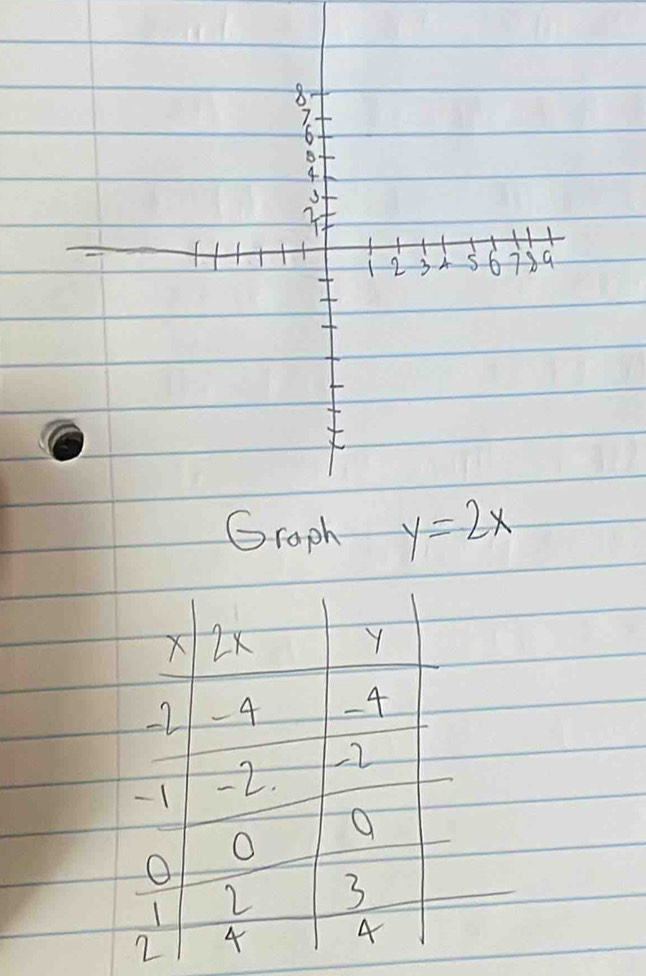 8
7
6
5
4
3
2
1
1 2 3 4 5 6 7 8 9
Graph y=2x
x 2x y
-2 -4 -4
-1 -2. -2
0 0 0
1 2 3
2 4 4